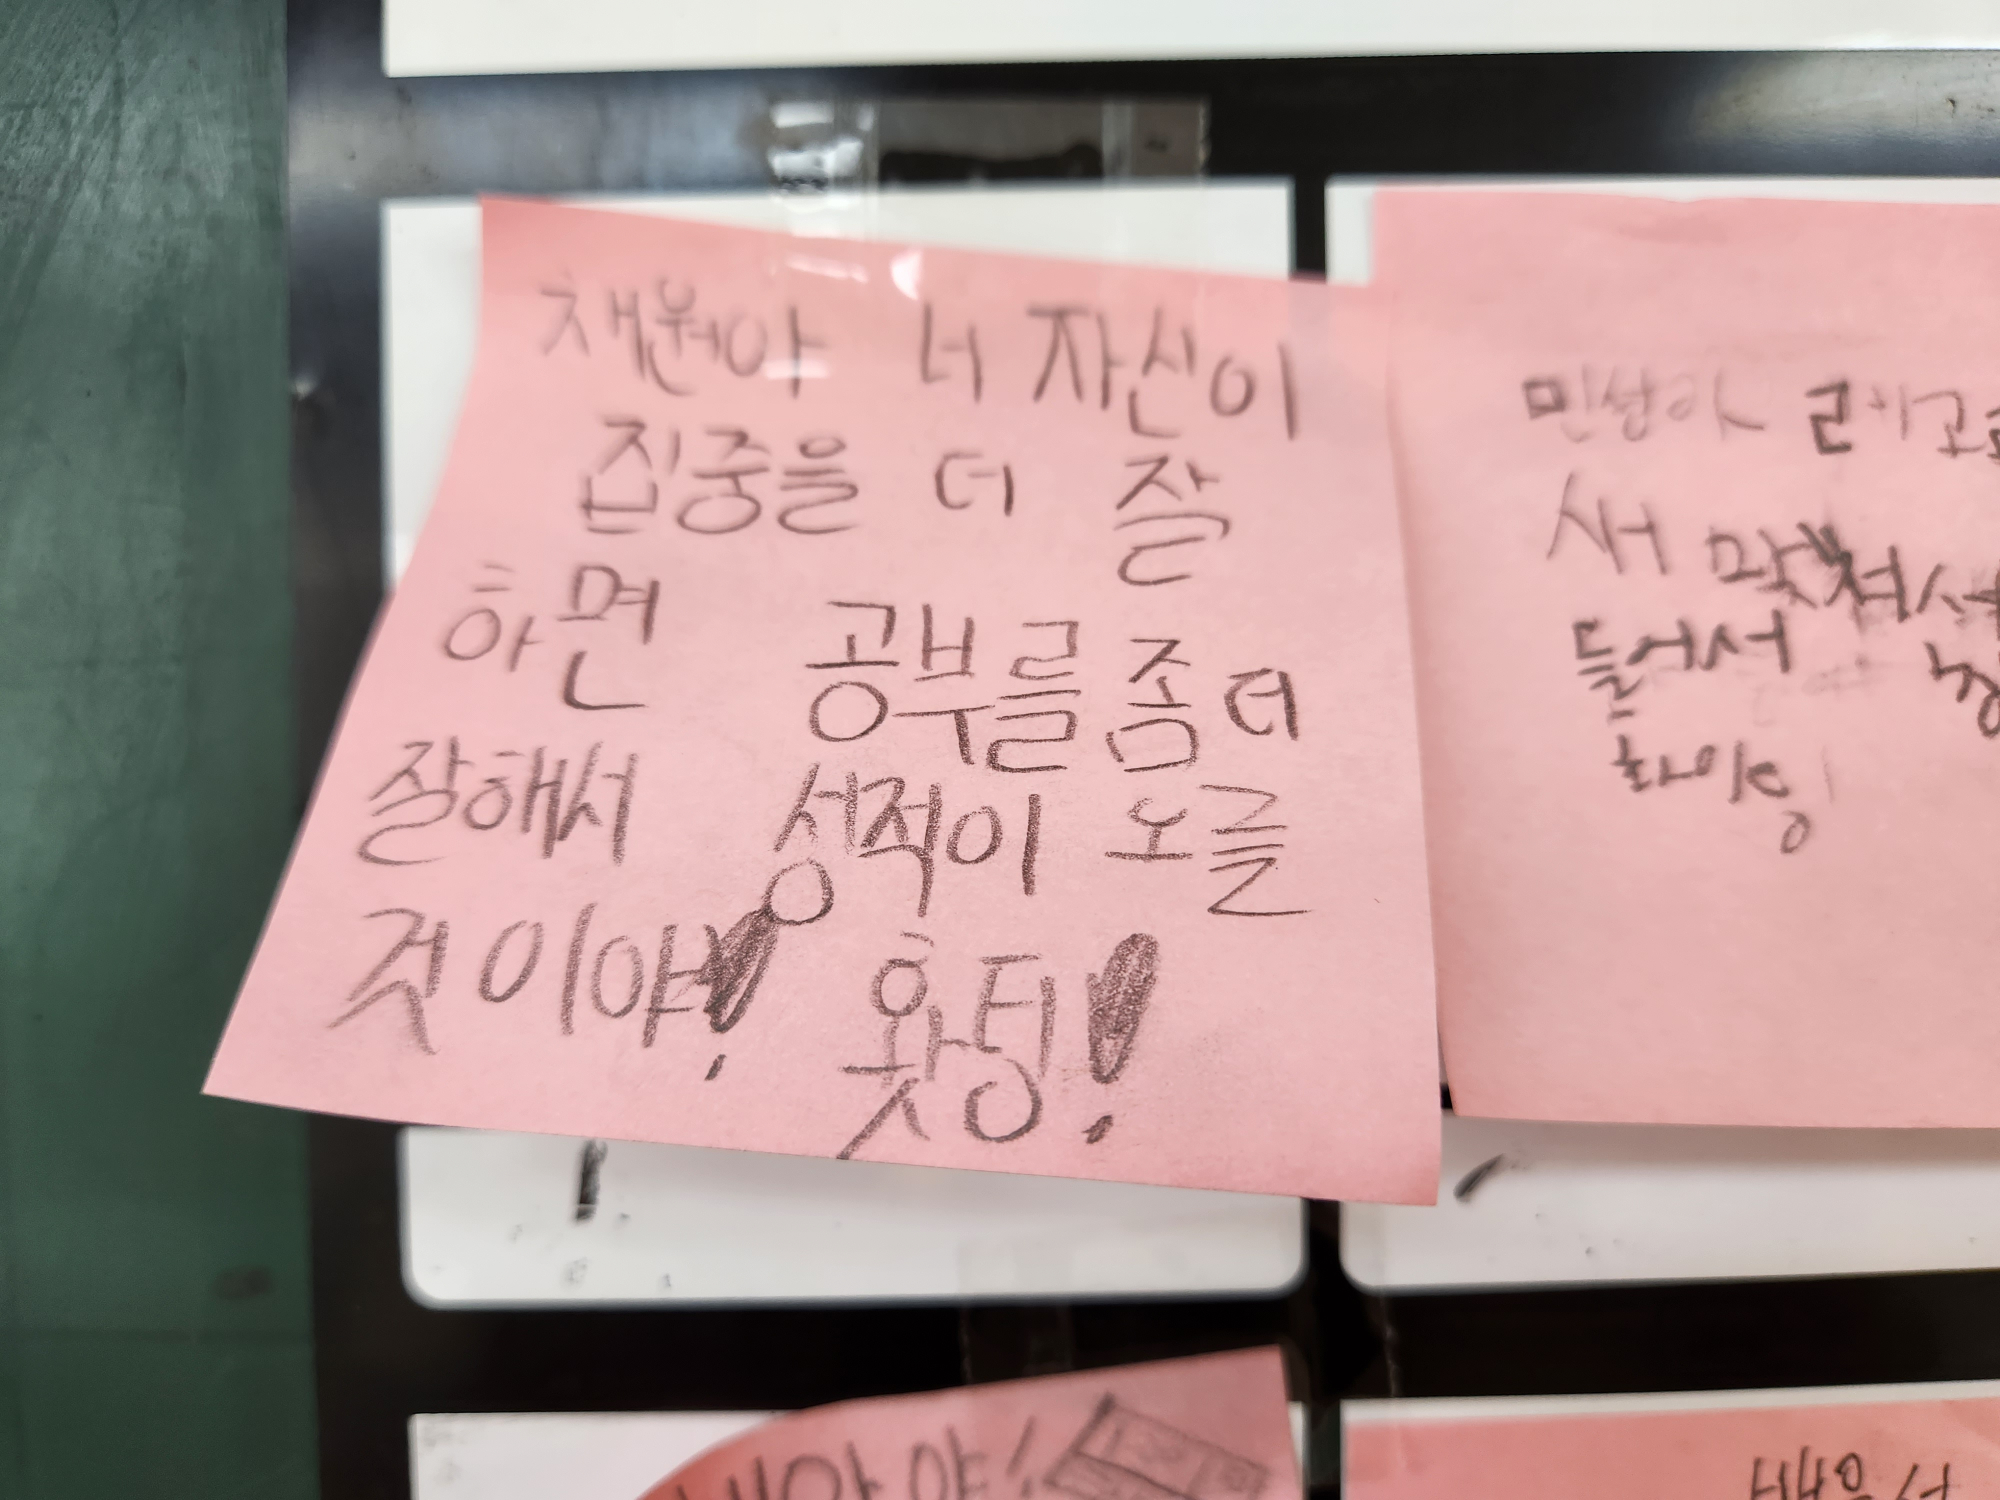 채원아 너 자신이
집중을 더 잘
하면 공부를 좀 더
잘해서 성적이 오를
것이야! 홧팅!
민성아 레고
새
들어서
화이링
야!